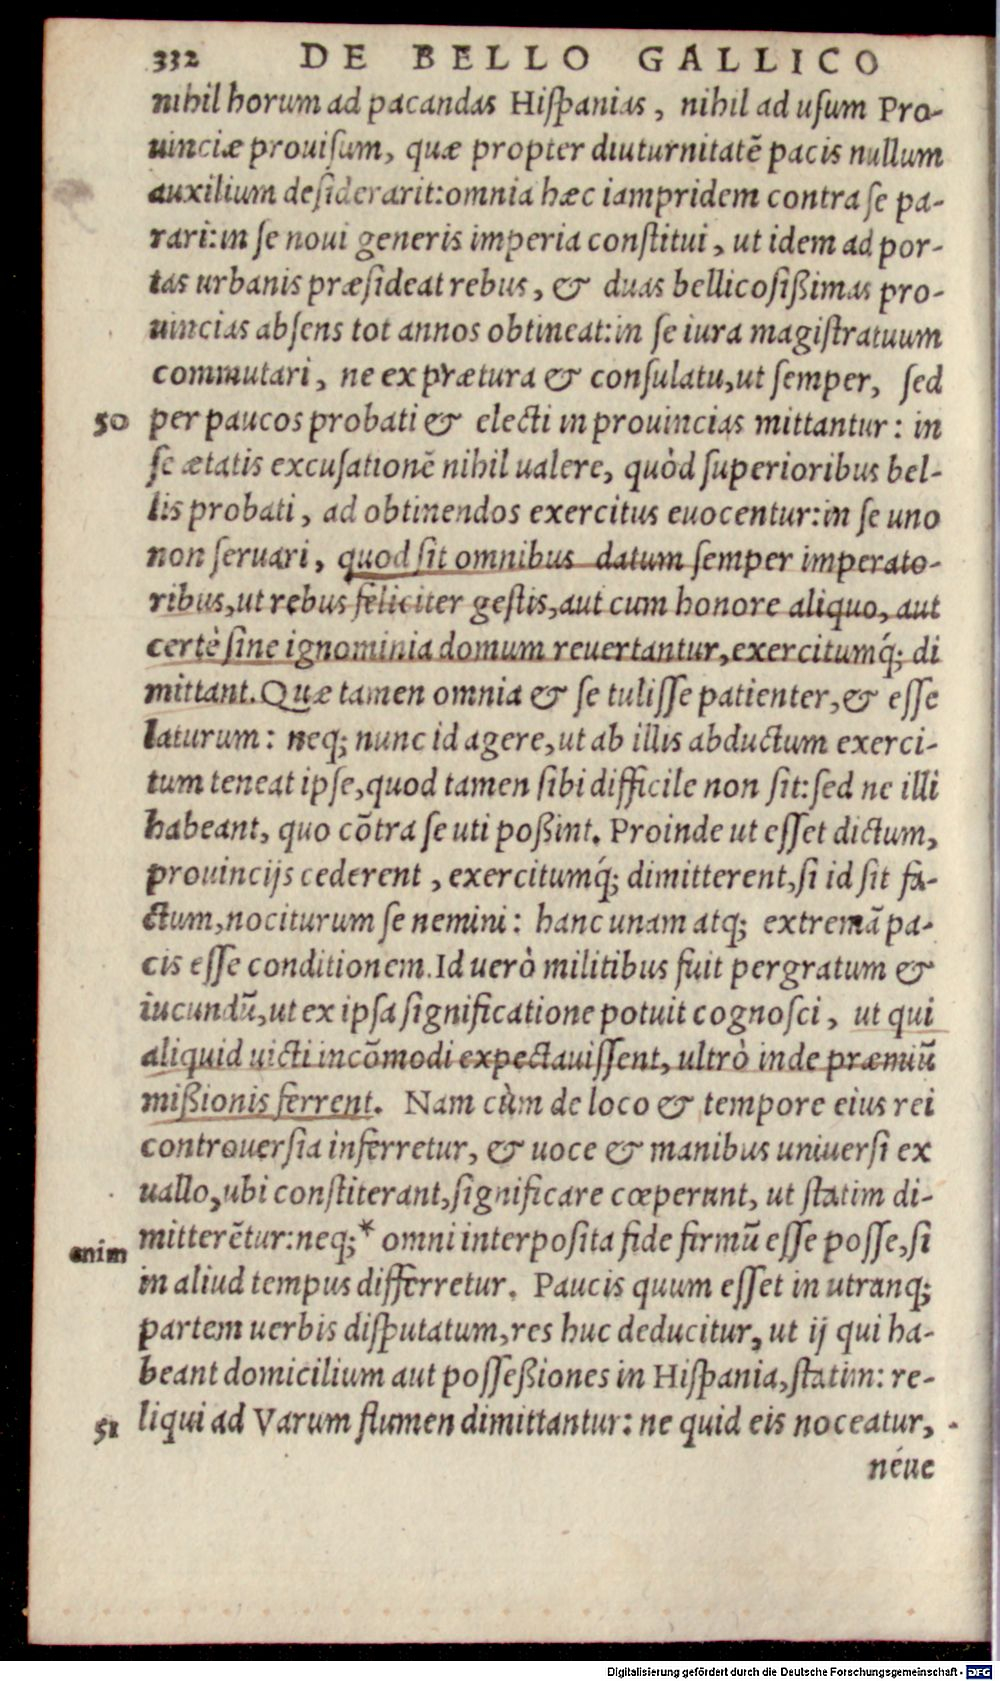 332 DE BELLO GALLICO
nihil horum ad pacandas Hiſpanias, nihil ad uſum Pro-
uinciæ prouiſum, quæ propter diuturnitatē pacis nullum
auxilium deſiderarit: omnia hæc iampridem contra ſe pa-
rari: in ſe noui generis imperia conſtitui, ut idem ad por-
tas urbanis præſideat rebus, & duas bellicoſißimas pro-
uincias abſens tot annos obtineat: in ſe iura magiſtratuum
commutari, ne ex prætura & conſulatu, ut ſemper, ſed
50 per paucos probati & electi in prouincias mittantur: in
ſe ætatis excuſationē nihil ualere, quòd ſuperioribus bel-
lis probati, ad obtinendos exercitus euocentur: in ſe uno
non ſeruari, quod ſit omnibus datum ſemper imperato-
ribus, ut rebus feliciter geſtis, aut cum honore aliquo, aut
certè ſine ignominia domum reuertantur, exercitumq́; di
mittant. Quæ tamen omnia & ſe tuliſſe patienter, & eſſe
laturum: neq; nunc id agere, ut ab illis abductum exerci-
tum teneat ipſe, quod tamen ſibi difficile non ſit: ſed ne illi
habeant, quo cōtra ſe uti poßint. Proinde ut eſſet dictum,
prouincijs cederent, exercitumq́; dimitterent, ſi id ſit fa-
ctum, nociturum ſe nemini: hanc unam atq; extremā pa-
cis eſſe conditionem. Id uerò militibus fuit pergratum &
iucundū, ut ex ipſa ſignificatione potuit cognoſci, ut qui
aliquid uicti incōmodi expectauiſſent, ultrò inde præmiū
mißionis ferrent. Nam cùm de loco & tempore eius rei
controuerſia inferretur, & uoce & manibus uniuerſi ex
uallo, ubi conſtiterant, ſignificare cœperunt, ut ſtatim di-
mitterētur: neq;* omni interpoſita fide firmū eſſe poſſe, ſi
enim
in aliud tempus differretur. Paucis quum eſſet in utranq;
partem uerbis diſputatum, res huc deducitur, ut ij qui ha-
beant domicilium aut poſſeßiones in Hiſpania, ſtatim: re-
51 liqui ad Varum flumen dimittantur: ne quid eis noceatur,
néue
Digitalisierung gefördert durch die Deutsche Forschungsgemeinschaft - DFG